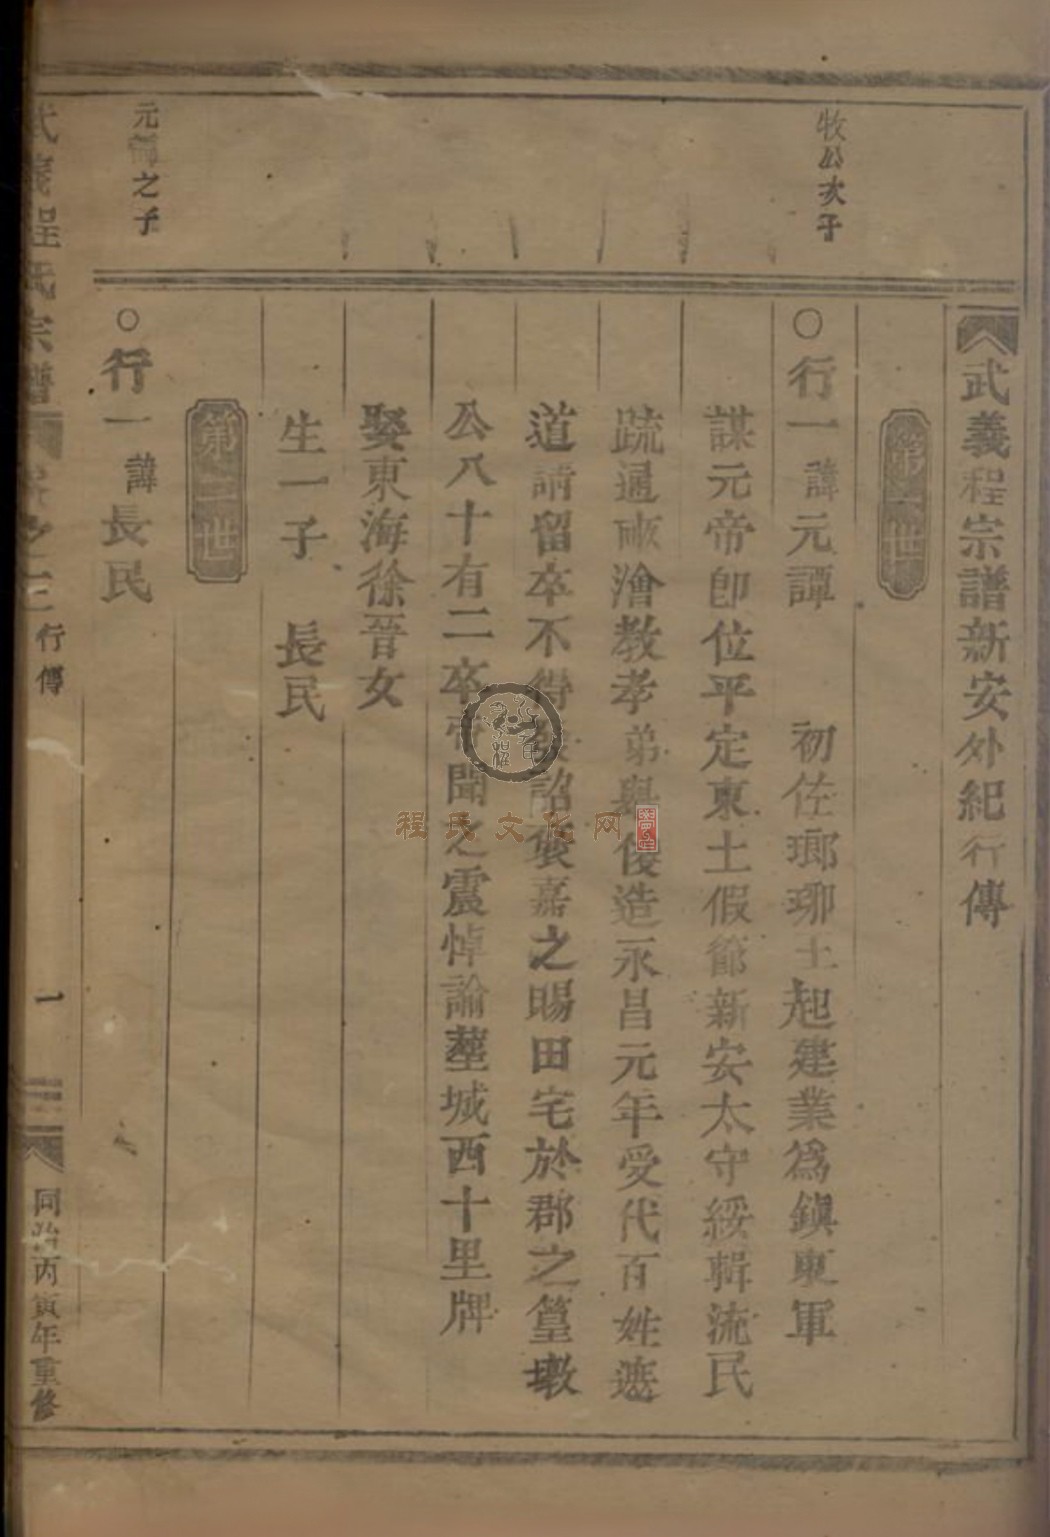 武義程宗譜新安外紀行傳
第一世
牧公次子
○行一 諱元譚 初佐瑯琊王起建業為鎭東軍
謀元帝卽位平定東土假節新安太守綏輯流民
疏通畎澮教孝弟興俊造永昌元年受代百姓遮
道請留卒不得 詔褒嘉之賜田宅於郡之篁墩
公八十有二卒帝聞之震悼諭塟城西十里牌
娶東海徐晉女
生一子 長民
第二世
元譚之子
○行一 諱長民
武義程氏宗譜 卷之二 行傳 一 同治丙寅年重修
程氏文化网